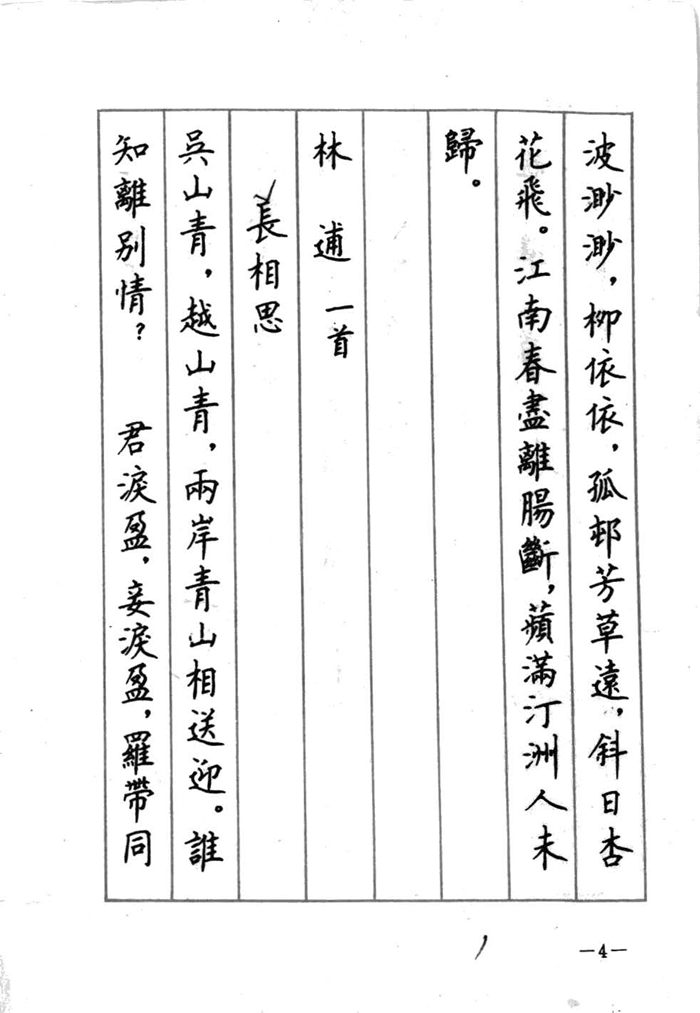 波渺渺，柳依依，孤邨芳草遠，斜日杏
花飛。江南春盡離腸斷，蘋滿汀洲人未
歸。
林逋一首
長相思
吳山青，越山青，兩岸青山相送迎。誰
知離別情？君淚盈，妾淚盈，羅帶同
—4—